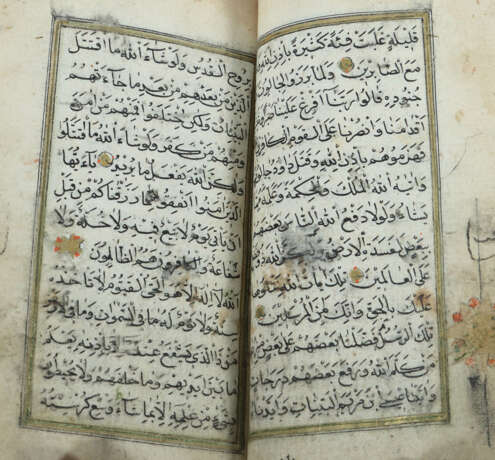 قليلة غلبت فئة كثيرة بإذن الله
مع الصابرين ولما برزوا لجالوت
جنوده قالوا ربنا أفرغ علينا صبرا
أقدامنا وانصرنا على القوم الكافرين
فهزموهم بإذن الله وقتل داود جا
وآتيه الله الملك والحكمة وعلمه
يشاء ولولا دفع الله الناس بعضهم
ببعض لفسدت الأرض الله ذو
على العالمين تلك آيات الله نتلوها
عليك بالحق وإنك لمن المرسلين
تلك الرسل فضلنا بعضهم على بعض
من كلم الله ورفع بعضهم درجات
وآتينا عيسى ابن مريم البينات وأيدناه
بروح القدس ولو شاء الله ما اقتتل
الذين من بعدهم من بعد ما جاءتهم
البينات ولكن اختلفوا فمنهم من آمن
ومنهم من كفر ولو شاء الله ما اقتتلوا
ولكن الله يفعل ما يريد يا أيها
الذين آمنوا أنفقوا مما رزقناكم من قبل
أن يأتي يوم لا بيع فيه ولا خلة ولا
شفاعة والكافرون هم الظالمون
الله لا إله إلا هو الحي القيوم لا تأخذه
سنة ولا نوم له ما في السموات وما في الأرض
من ذا الذي يشفع عنده إلا بإذنه يعلم
ما بين أيديهم وما خلفهم ولا يحيطون
بشيء من علمه إلا بما شاء وسع كرسيه